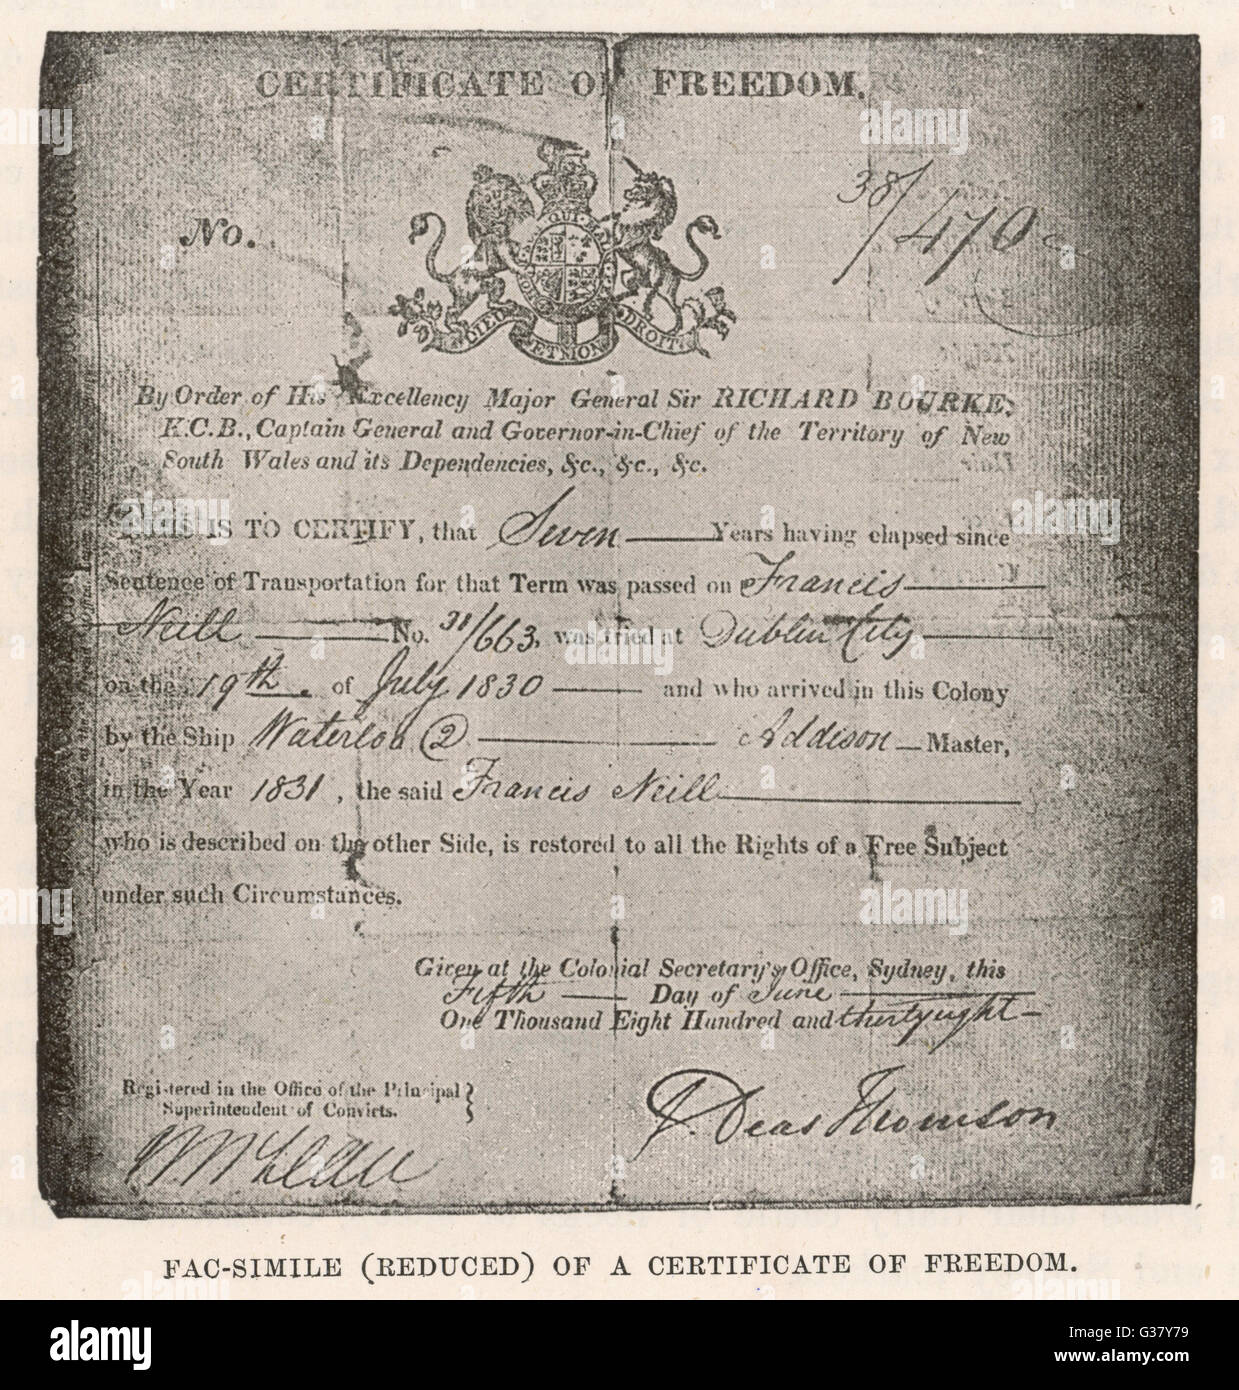 CERTIFICATE OF FREEDOM.
38/470
No.
QUI MAL
DIEU ET MON DROIT
By Order of His Excellency Major General Sir RICHARD BOURKE,
K.C.B., Captain General and Governor-in-Chief of the Territory of New
South Wales and its Dependencies, &c., &c., &c.
THIS IS TO CERTIFY, that Seven Years having elapsed since
Sentence of Transportation for that Term was passed on Francis
Neill No. 31/663, was tried at Dublin City
on the 19th of July 1830 and who arrived in this Colony
by the Ship Waterloo (2) Addison Master,
in the Year 1831, the said Francis Neill
who is described on the other Side, is restored to all the Rights of a Free Subject
under such Circumstances.
Given at the Colonial Secretary's Office, Sydney, this
Fifth Day of June
One Thousand Eight Hundred and thirty eight
Registered in the Office of the Principal
Superintendent of Convicts.
E. Deas Thomson
FAC-SIMILE (REDUCED) OF A CERTIFICATE OF FREEDOM.
alamy
Image ID: G37Y79
www.alamy.com